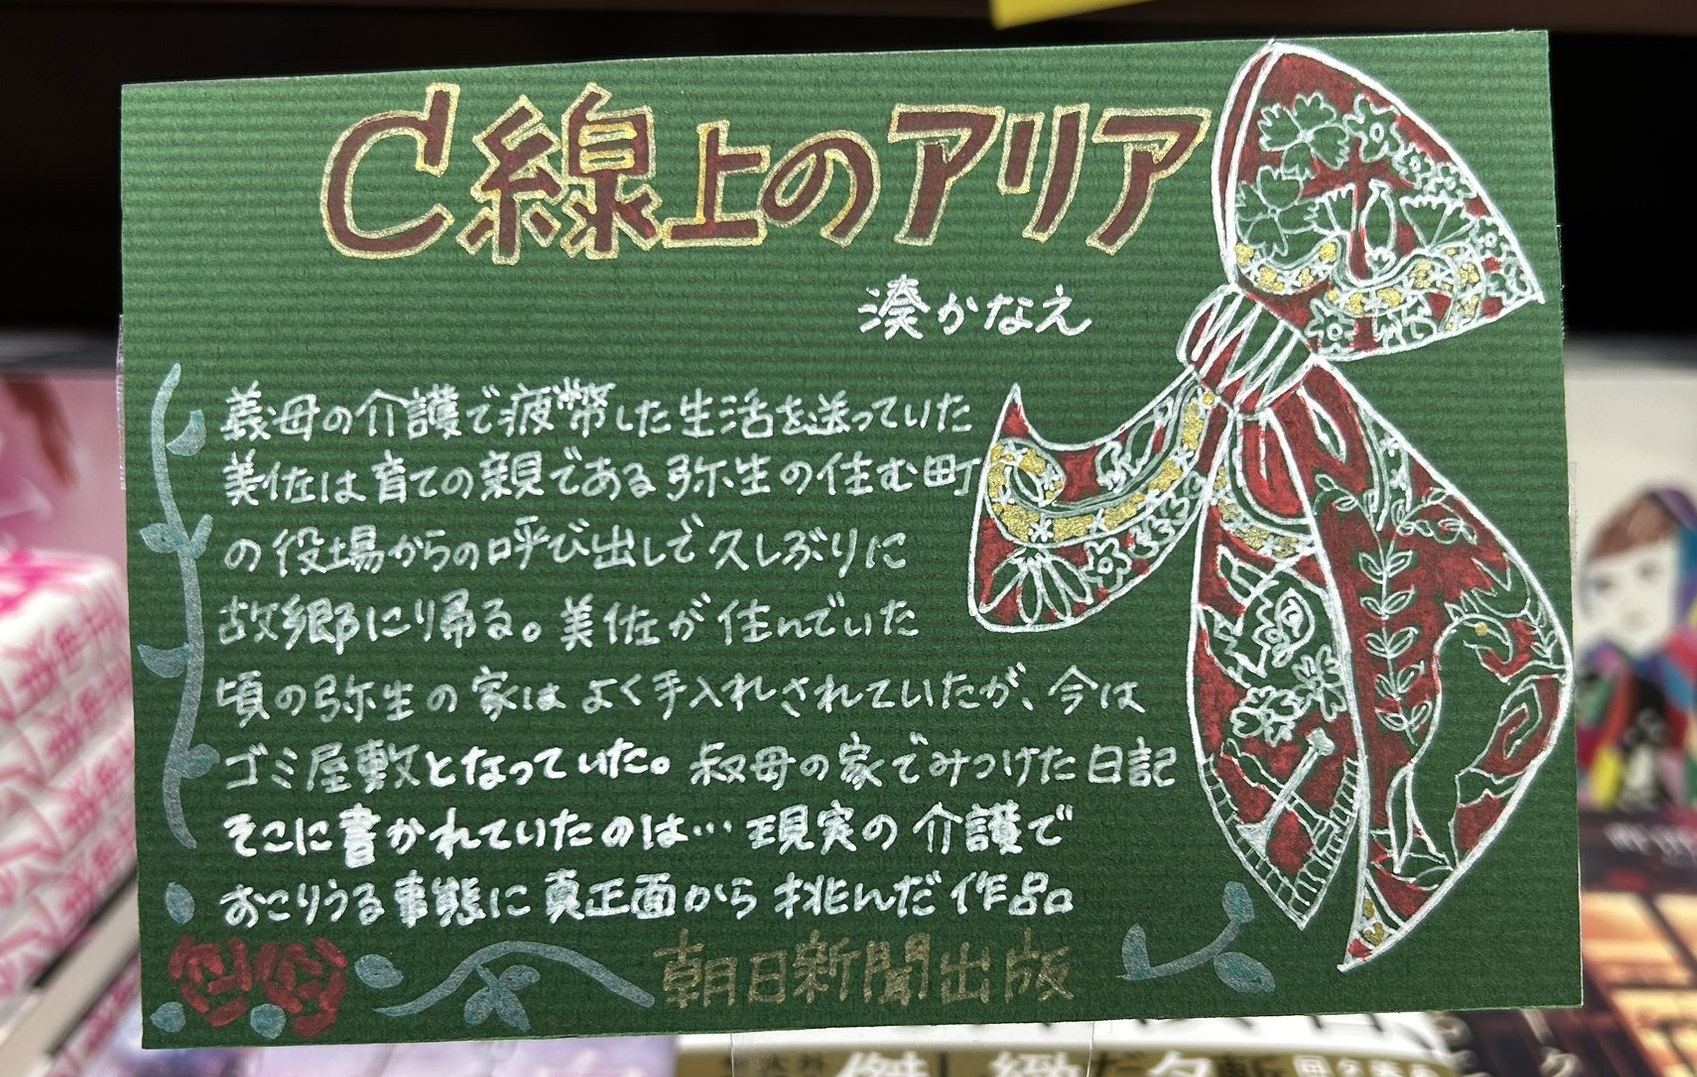 C線上のアリア
湊かなえ
義母の介護で疲幣した生活を送っていた
美佐は育ての親である弥生の住む町
の役場からの呼び出しで久しぶりに
故郷に帰る。美佐が住んでいた
頃の弥生の家はよく手入れされていたが、今は
ゴミ屋敷となっていた。叔母の家でみつけた日記
そこに書かれていたのは…現実の介護で
おこりうる事態に真正面から挑んだ作品。
朝日新聞出版